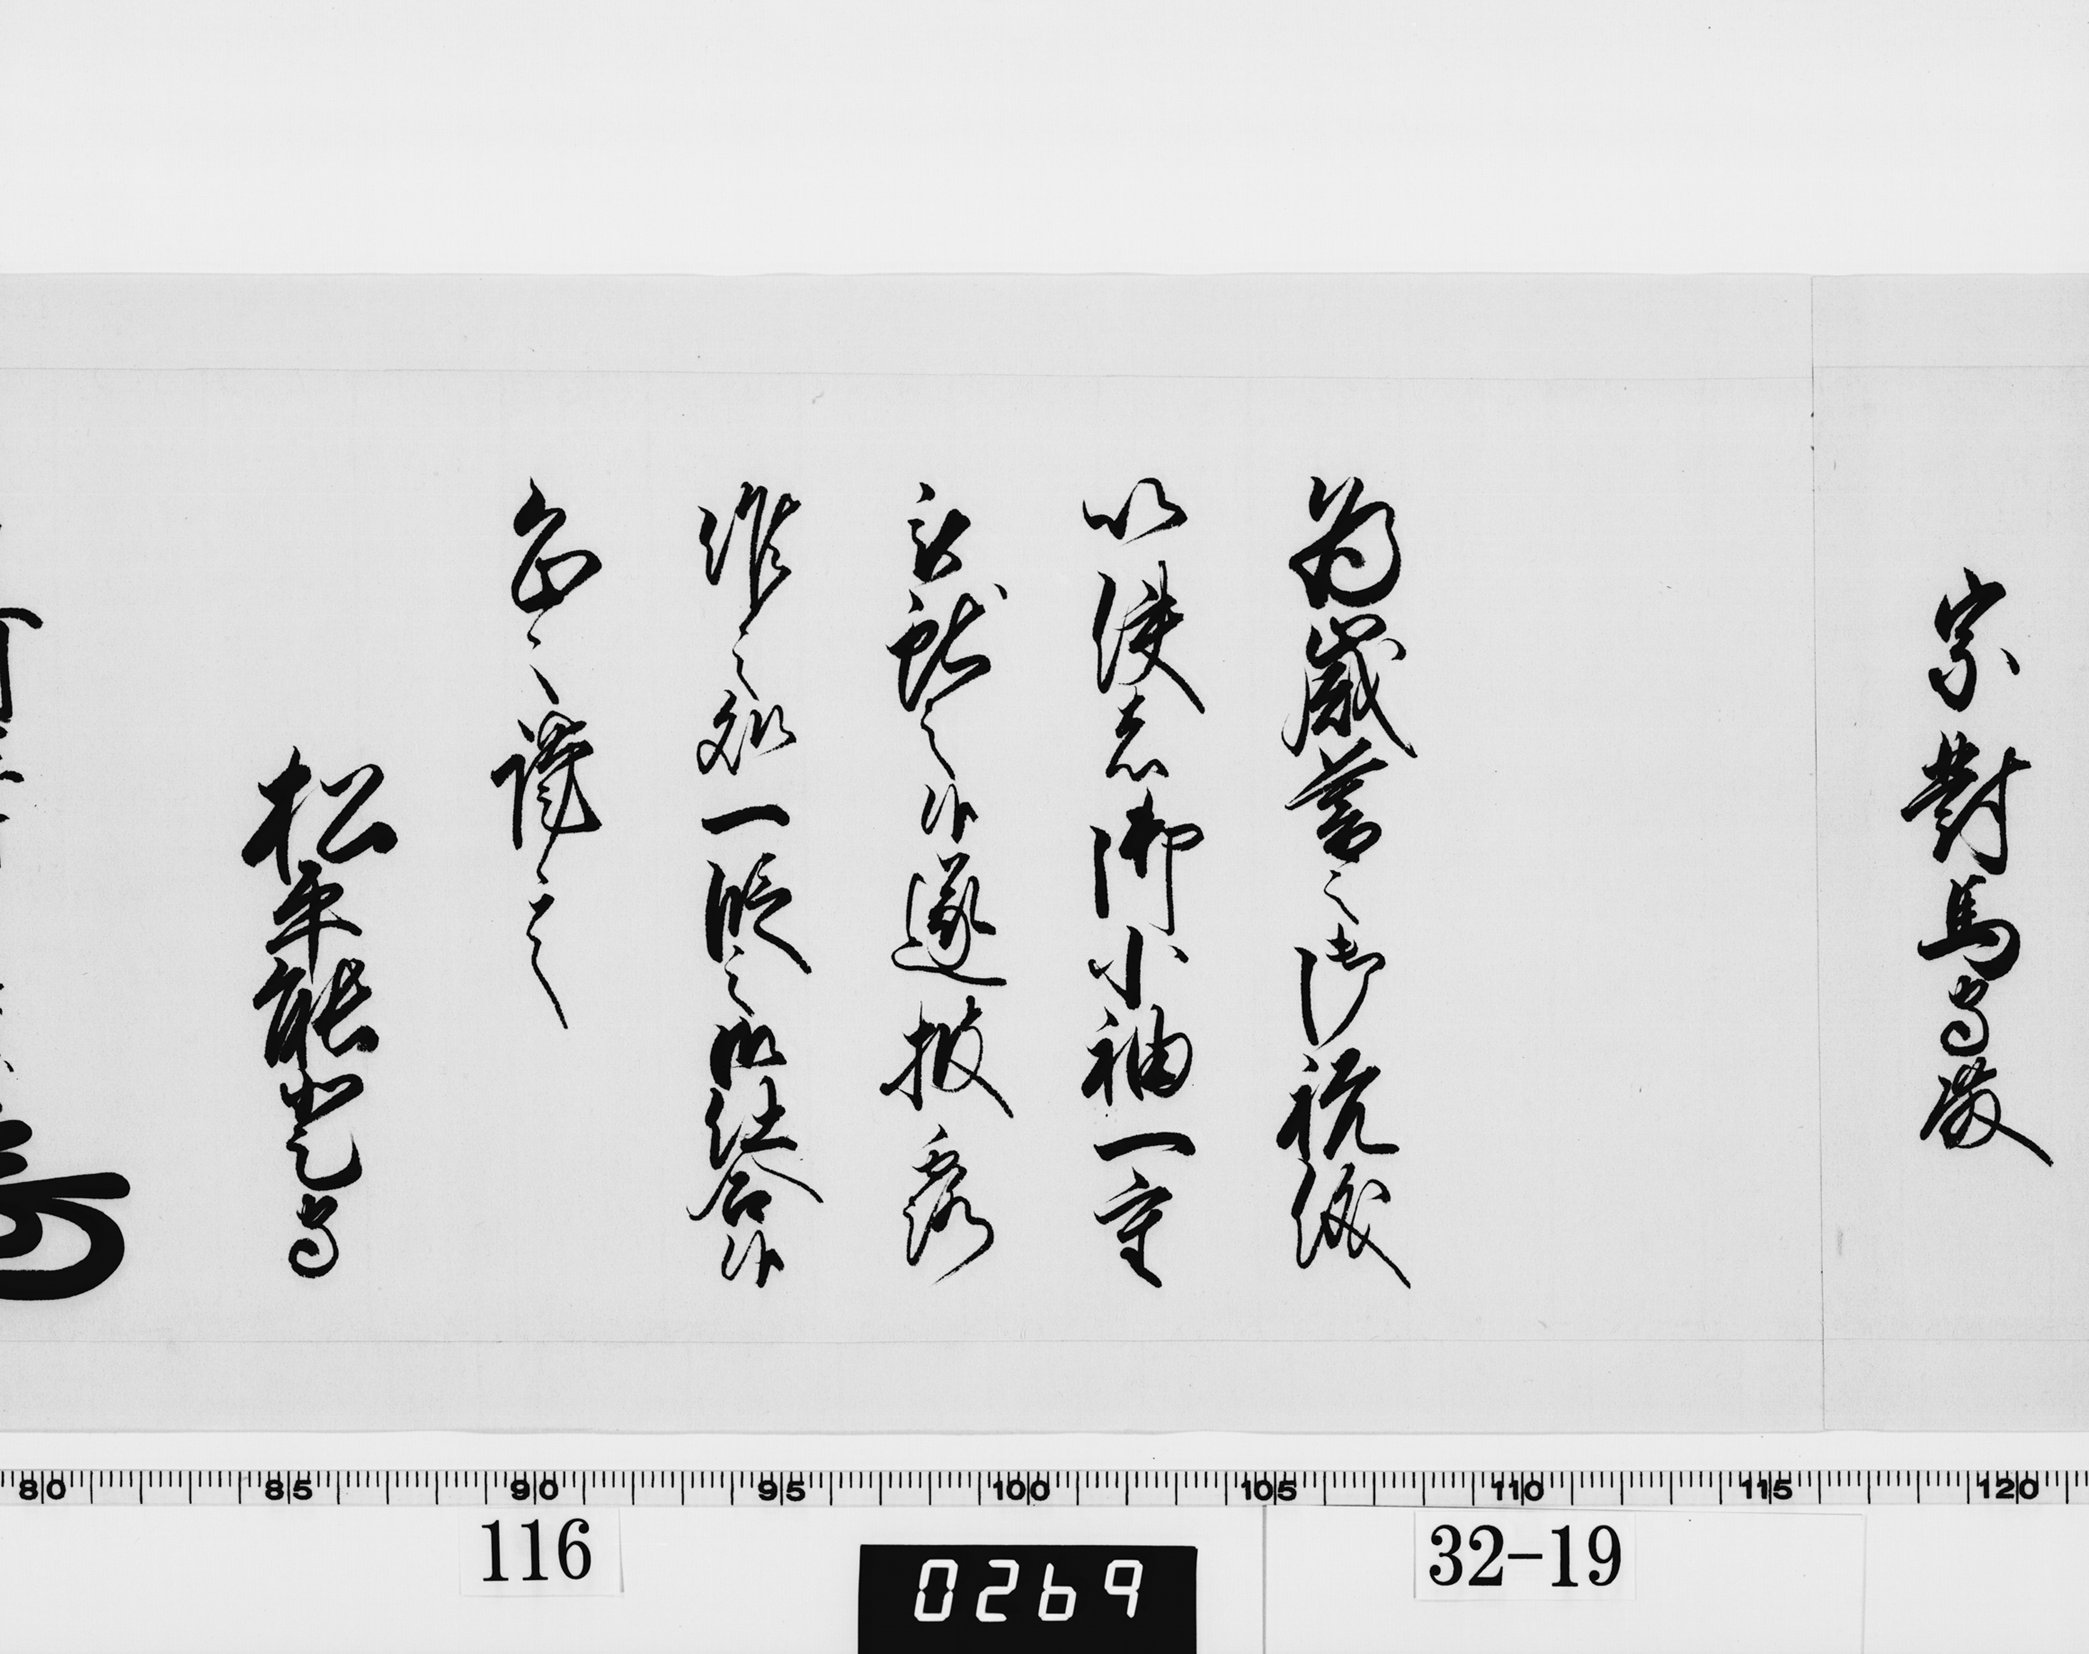 宗對馬守殿
為歳暮之御祝儀
以使者御小袖一重
被献之候遂披露
候之処一段之御仕合候
恐々謹言
松平能登守
80 85 90 95 100 105 110 115 120
116
0269
32-19